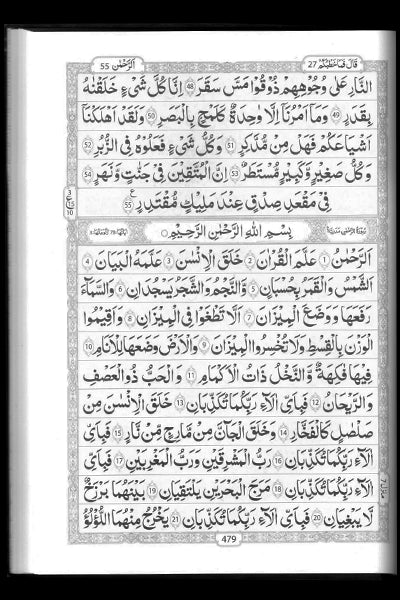 قَالَ فَمَا خَطْبُكُمْ 27
اَلرَّحْمٰن 55
النَّارِ عَلٰى وُجُوْهِهِمْ ذُوْقُوْا مَسَّ سَقَرَ 48 اِنَّا كُلَّ شَیْءٍ خَلَقْنٰهُ
بِقَدَرٍ 49 وَمَاۤ اَمْرُنَاۤ اِلَّا وَاحِدَةٌ كَلَمْحٍۭ بِالْبَصَرِ 50 وَلَقَدْ اَهْلَكْنَاۤ
اَشْيَاعَكُمْ فَهَلْ مِنْ مُّدَّكِرٍ 51 وَكُلُّ شَیْءٍ فَعَلُوْهُ فِی الزُّبُرِ 52
وَكُلُّ صَغِيْرٍ وَّكَبِيْرٍ مُّسْتَطَرٌ 53 اِنَّ الْمُتَّقِيْنَ فِیْ جَنّٰتٍ وَّنَهَرٍ 54
فِیْ مَقْعَدِ صِدْقٍ عِنْدَ مَلِيْكٍ مُّقْتَدِرٍ 55
بِسْمِ اللّٰهِ الرَّحْمٰنِ الرَّحِيْمِ
اَلرَّحْمٰنُ 1 عَلَّمَ الْقُرْاٰنَ 2 خَلَقَ الْاِنْسٰنَ 3 عَلَّمَهُ الْبَيَانَ 4
اَلشَّمْسُ وَالْقَمَرُ بِحُسْبَانٍ 5 وَّالنَّجْمُ وَالشَّجَرُ يَسْجُدَانِ 6 وَالسَّمَآءَ
رَفَعَهَا وَوَضَعَ الْمِيْزَانَ 7 اَلَّا تَطْغَوْا فِی الْمِيْزَانِ 8 وَاَقِيْمُوا
الْوَزْنَ بِالْقِسْطِ وَلَا تُخْسِرُوا الْمِيْزَانَ 9 وَالْاَرْضَ وَضَعَهَا لِلْاَنَامِ 10
فِيْهَا فَاكِهَةٌ وَّالنَّخْلُ ذَاتُ الْاَكْمَامِ 11 وَالْحَبُّ ذُو الْعَصْفِ
وَالرَّيْحَانُ 12 فَبِاَیِّ اٰلَآءِ رَبِّكُمَا تُكَذِّبَانِ 13 خَلَقَ الْاِنْسٰنَ مِنْ
صَلْصٰلٍ كَالْفَخَّارِ 14 وَخَلَقَ الْجَآنَّ مِنْ مَّارِجٍ مِّنْ نَّارٍ 15 فَبِاَیِّ
اٰلَآءِ رَبِّكُمَا تُكَذِّبَانِ 16 رَبُّ الْمَشْرِقَيْنِ وَرَبُّ الْمَغْرِبَيْنِ 17 فَبِاَیِّ
اٰلَآءِ رَبِّكُمَا تُكَذِّبَانِ 18 مَرَجَ الْبَحْرَيْنِ يَلْتَقِيَانِ 19 بَيْنَهُمَا بَرْزَخٌ
لَّا يَبْغِيَانِ 20 فَبِاَیِّ اٰلَآءِ رَبِّكُمَا تُكَذِّبَانِ 21 يَخْرُجُ مِنْهُمَا اللُّؤْلُؤُ
479